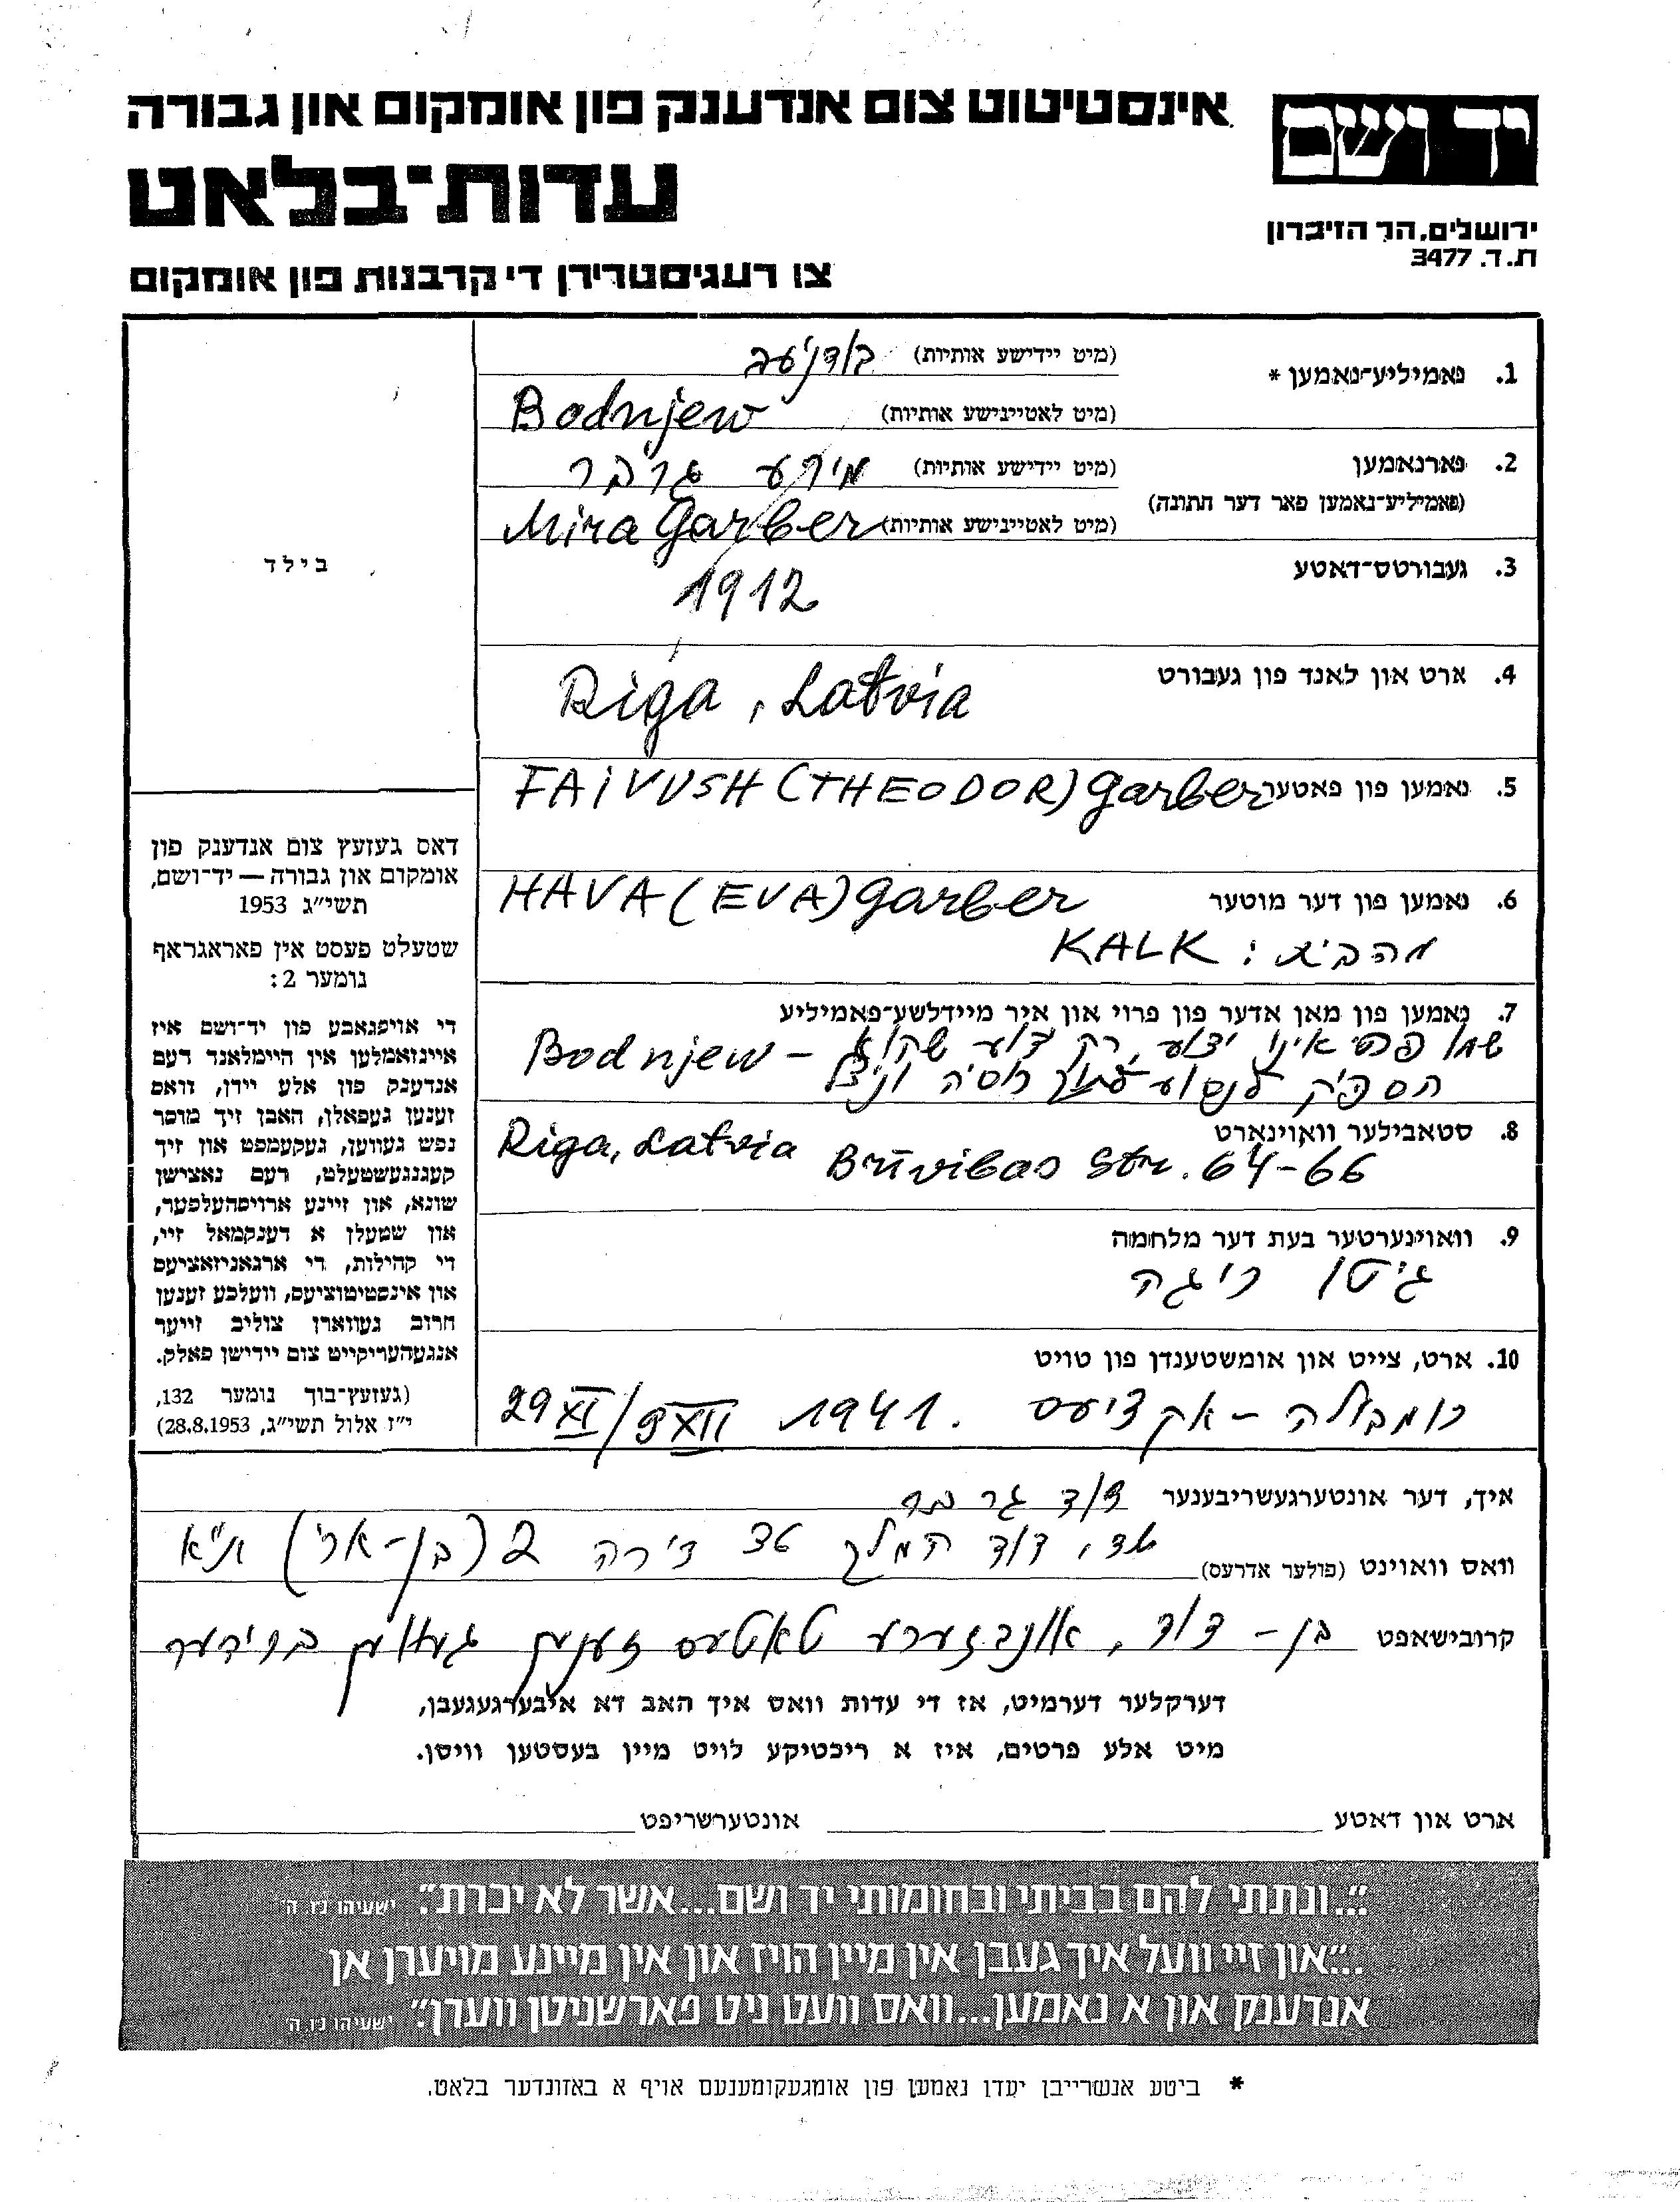 אינסטיטוט צום אנדענק פון אומקום און גבורה
יד ושם
עדות־בלאט
ירושלים, הר הזיכרון
ת.ד. 3477
צו רעגיסטרירן די קרבנות פון אומקום
1. פאמיליע־נאמען * (מיט יידישע אותיות) בודניעב
(מיט לאטיינישע אותיות) Bodnjew
2. פארנאמען (מיט יידישע אותיות) מירע גרבר
(פאמיליע־נאמען פאר דער חתונה) (מיט לאטיינישע אותיות) Mira Garber
בילד
3. געבורטס־דאטע 1912
4. ארט און לאנד פון געבורט Riga, Latvia
5. נאמען פון פאטער FAIVUSH (THEODOR) Garber
6. נאמען פון דער מוטער HAVA (EVA) Garber
מהבית: KALK
7. נאמען פון מאן אדער פון פרוי און איר מיידלשע־פאמיליע
Bodnjew – שמו פרטי אינו ידוע, רק ידוע
הספיק לנסוע לתוך רוסיה וניצל
8. סטאבילער וואוינארט Riga, Latvia Brīvibas Str. 64-66
9. וואוינערטער בעת דער מלחמה
גיטו ריגה
10. ארט, צייט און אומשטענדן פון טויט
רומבולה – אקציעס 29 XI / 9 XII 1941.
דאס געזעץ צום אנדענק פון
אומקום און גבורה — יד־ושם,
תשי״ג 1953
שטעלט פעסט אין פאראגראף
נומער 2:
די אויפגאבע פון יד־ושם איז
איינזאמלען אין היימלאנד דעם
אנדענק פון אלע יידן, וואס
זענען געפאלן, האבן זיך מוסר
נפש געווען, געקעמפט און זיך
קעגנגעשטעלט, דעם נאצישן
שונא, און זיינע ארויסהעלפער,
און שטעלן א דענקמאל זיי,
די קהילות, די ארגאניזאציעס
און אינסטיטוציעס, וועלכע זענען
חרוב געווארן צוליב זייער
אנגעהעריקייט צום יידישן פאלק.
(געזעץ־בוך נומער 132,
י״ז אלול תשי״ג, 28.8.1953)
איך, דער אונטערגעשריבענער דוד גרבר
וואס וואוינט (פולער אדרעס) שד׳ דוד המלך 36 דירה 2 ת״א
קרובישאפט בן – דוד, אונדזערע טאטעס זענען געווען ברידער
דערקלער דערמיט, אז די עדות וואס איך האב דא איבערגעגעבן,
מיט אלע פרטים, איז א ריכטיקע לויט מיין בעסטען וויסן.
ארט און דאטע אונטערשריפט
״...ונתתי להם בביתי ובחומותי יד ושם...אשר לא יכרת״. ישעיהו נו. ה׳
״...און זיי וועל איך געבן אין מיין הויז און אין מיינע מויערן אן
אנדענק און א נאמען...וואס וועט ניט פארשניטן ווערן״. ישעיהו נו. ה׳
* ביטע אנשרייבן יעדן נאמען פון אומגעקומענעם אויף א באזונדער בלאט.